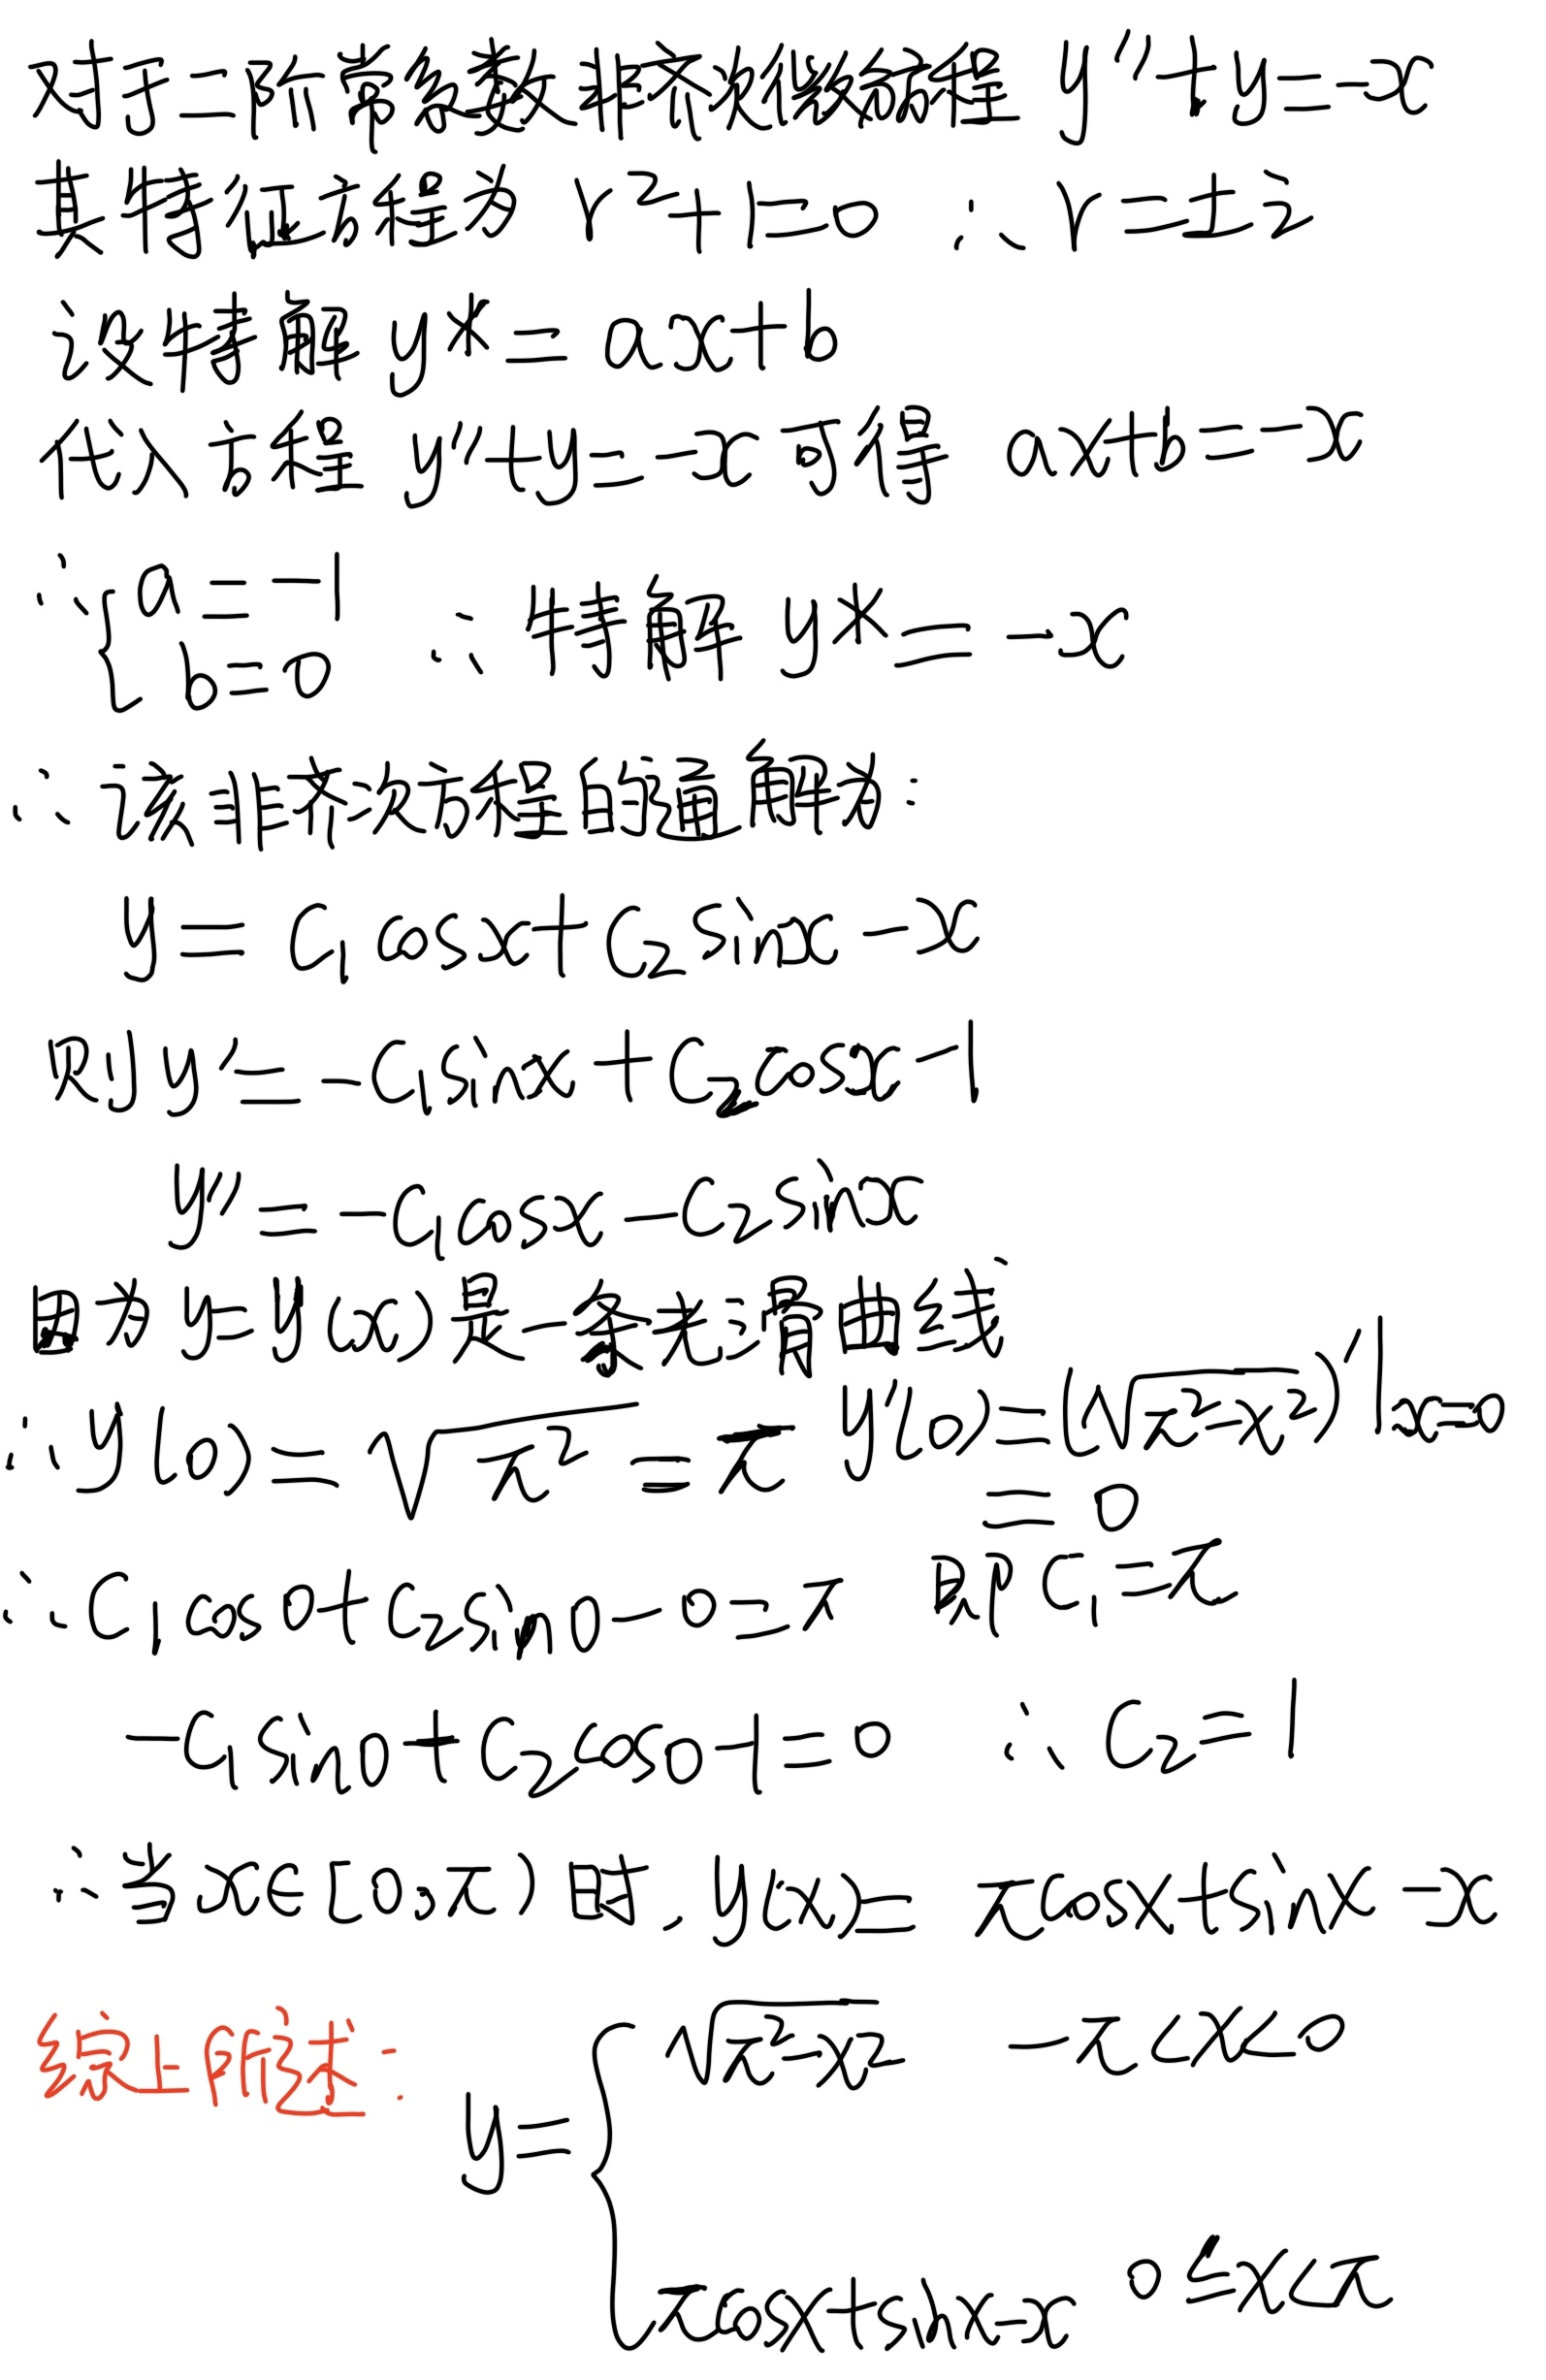 对于二阶常系数非齐次微分方程 y''+y=-x
其特征方程为 r²+1=0 ∴ r=±i
设特解 y*=ax+b
代入方程 y''+y=-x 可得 ax+b=-x
∴ { a=-1 b=0 ∴ 特解 y*=-x
∴ 该非齐次方程的通解为:
y= C₁cosx+C₂sinx-x
则 y'=-C₁sinx+C₂cosx-1
y''=-C₁cosx-C₂sinx
因为 y=y(x) 是一条光滑曲线
∴ y(0)=√π²=π y'(0)=(√π²-x²)'|x=0
=0
∴ C₁cos0+C₂sin0-0=π 即 C₁=π
-C₁sin0+C₂cos0-1=0 ∴ C₂=1
∴ 当 x∈[0,π) 时, y(x)= πcosx+sinx-x
综上所述:
y= { √π²-x² -π<x<0
πcosx+sinx-x 0≤x<π